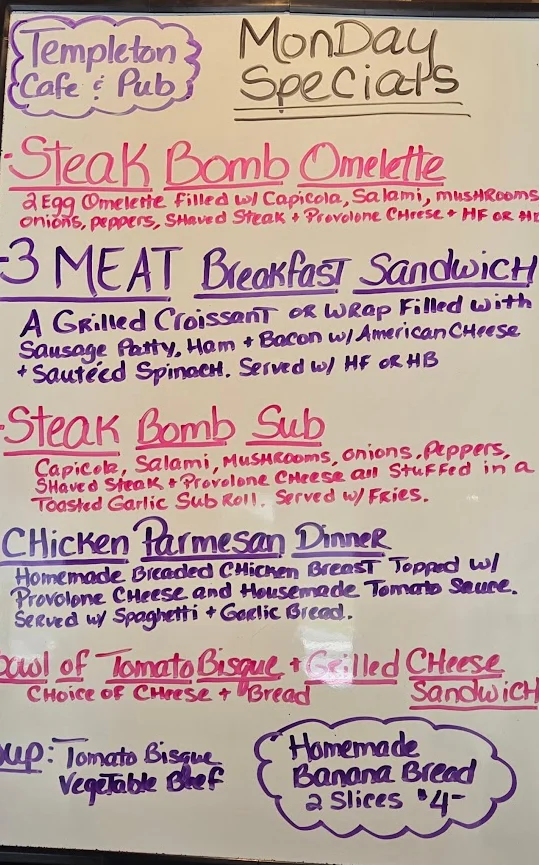 Templeton
Cafe & Pub
MonDay
Specials
-Steak Bomb Omelette
2 Egg Omelette filled w/ Capicola, Salami, musHRooms
onions, peppers, SHaved Steak + Provolone CHeese + HF OR HB
-3 MEAT Breakfast SandwicH
A GRilled CroissanT OR WRap Filled with
Sausage Patty, Ham + Bacon w/ American CHeese
+ Sautéed SpinacH. Served w/ HF OR HB
-Steak Bomb Sub
Capicola, Salami, MusHRooms, onions, Peppers,
SHaved Steak + Provolone CHeese all StuFFed in a
Toasted Garlic Sub Roll. Served w/ FRies.
CHicken Parmesan Dinner
Homemade Breaded CHicken Breast Topped w/
Provolone CHeese and Housemade Tomato Sauce.
Served w/ Spaghetti + Garlic Bread.
Bowl of Tomato Bisque + Grilled CHeese
SandwicH
CHoice of CHeese + Bread
oup: Tomato Bisque
VegeTable Beef
Homemade
Banana Bread
2 Slices $4-